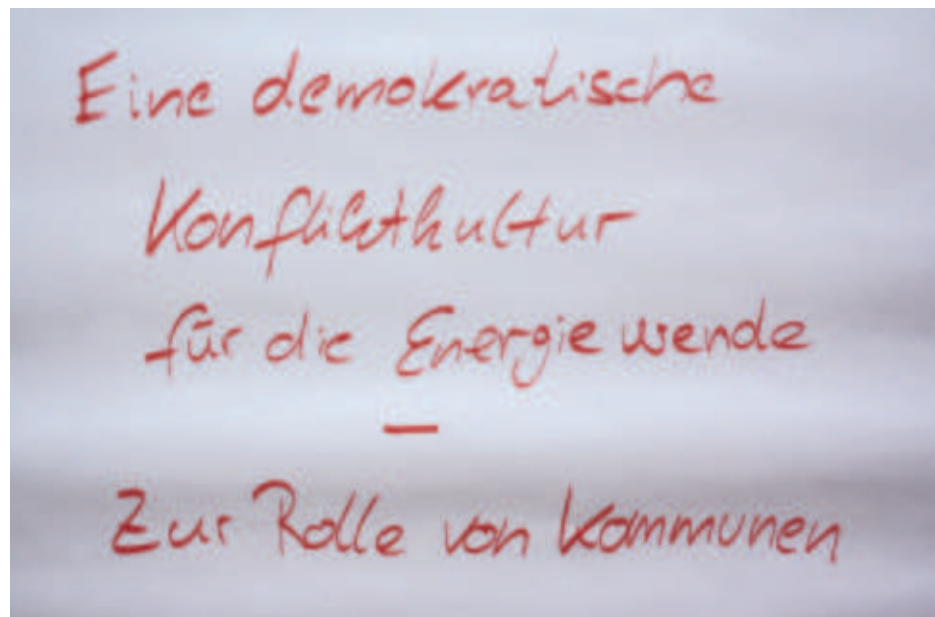 Eine demokratische
Konfliktkultur
für die Energiewende
—
Zur Rolle von Kommunen